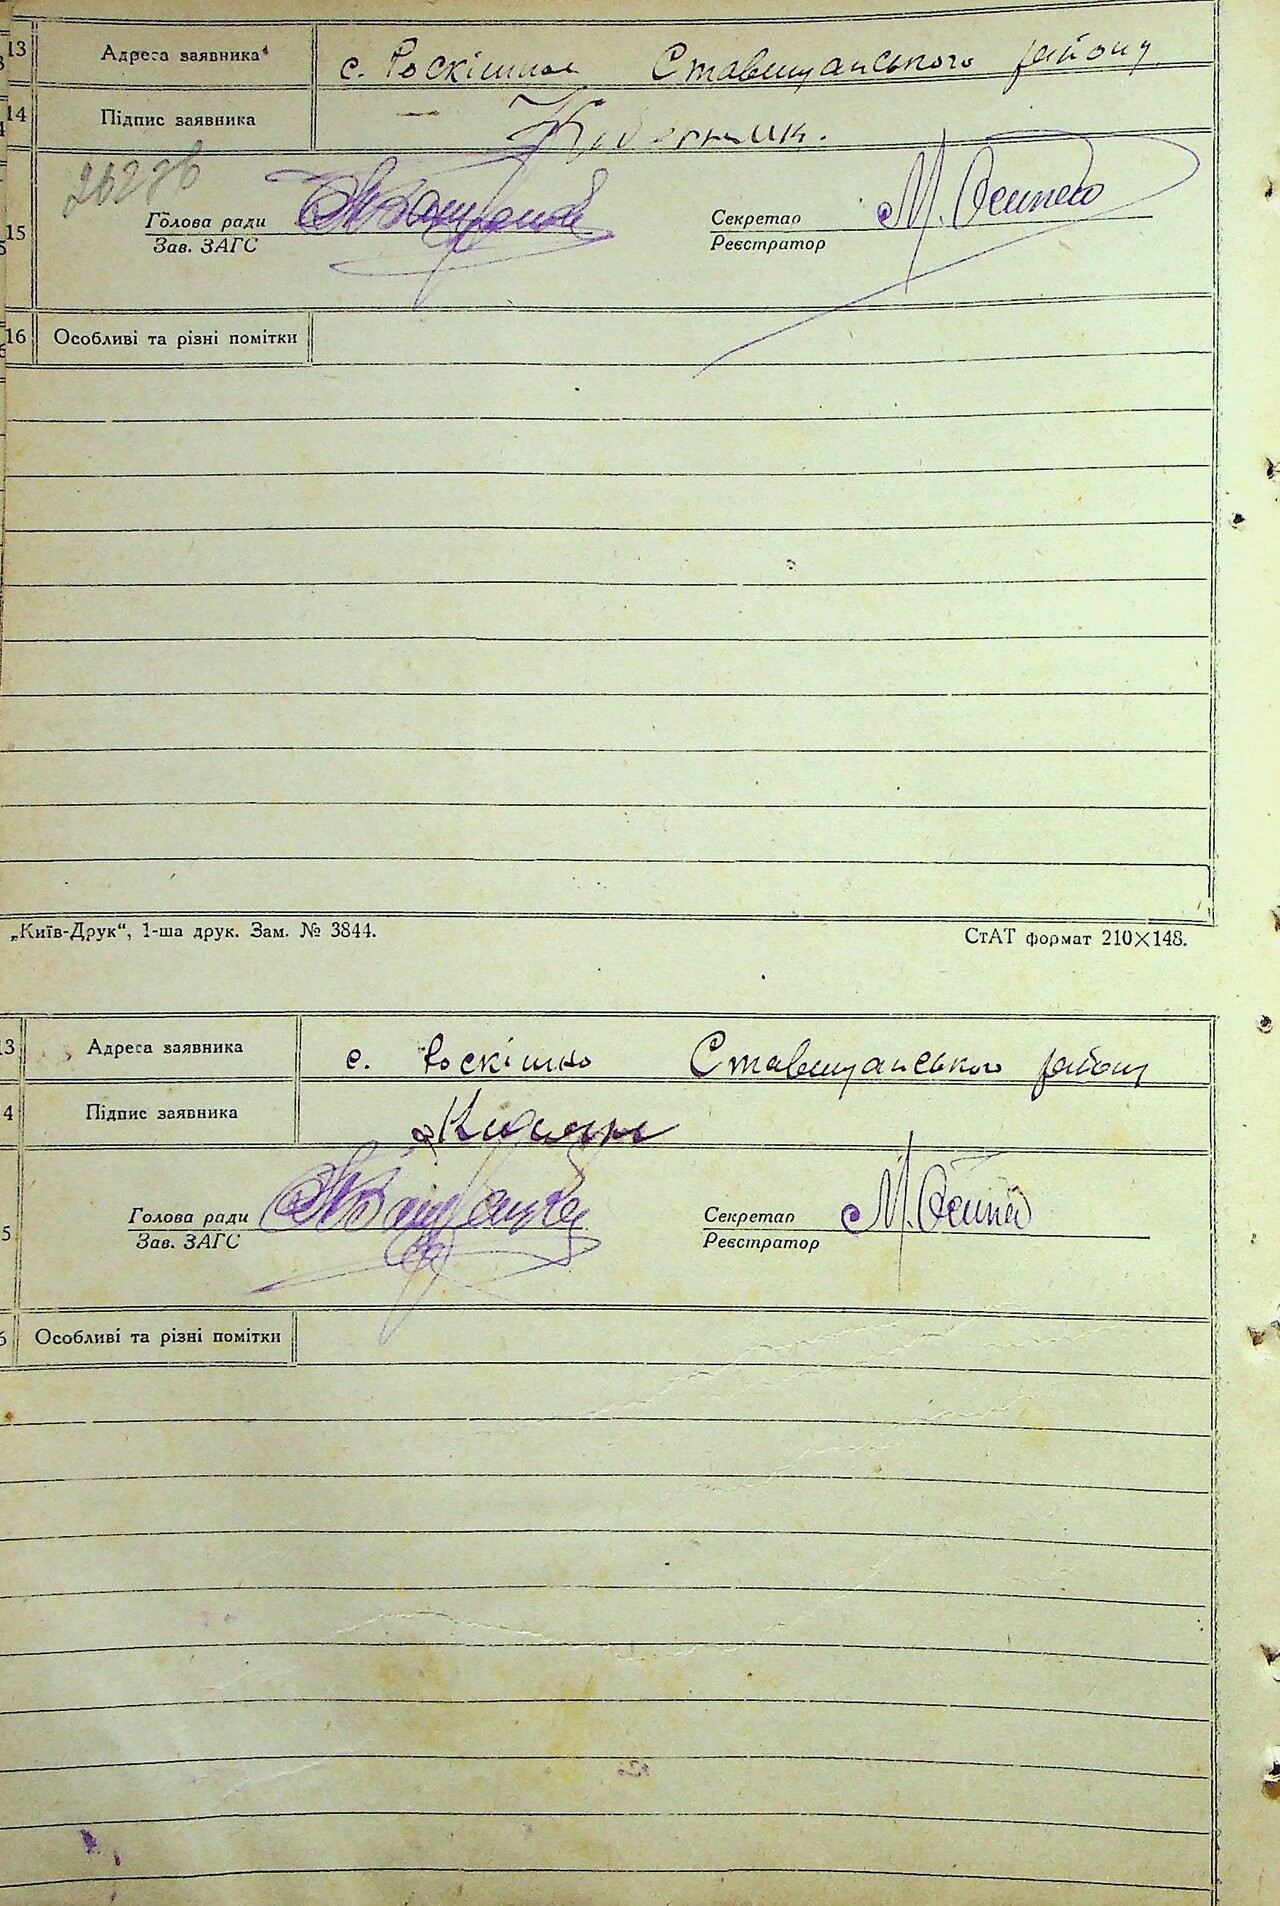 13 Адреса заявника с. Роскішна Ставищанського району
14 Підпис заявника
15 Голова ради Секретар М. Осипко
Зав. ЗАГС Реєстратор
16 Особливі та різні помітки
„Київ-Друк“, 1-ша друк. Зам. № 3844. СтАТ формат 210×148.
13 Адреса заявника с. Роскішно Ставищанського району
4 Підпис заявника
5 Голова ради Секретар
Зав. ЗАГС Реєстратор
6 Особливі та різні помітки